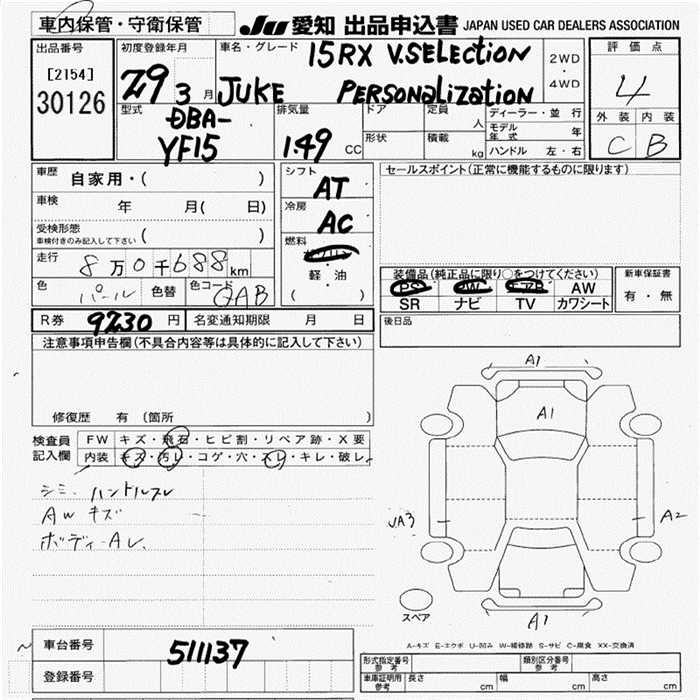 車内保管・守衛保管
JU 愛知 出品申込書 JAPAN USED CAR DEALERS ASSOCIATION
出品番号
[2154]
30126
初度登録年月
29 3 月
車名・グレード
15RX V.SELECTION
JUKE PERSONALIZATION
2WD
・
4WD
評価点
4
外装 内装
C B
型式
DBA-
YF15
排気量
1.49 CC
ドア
定員 人
形状
積載 kg
ディーラー・並行
モデル年式 年
ハンドル 左・右
車歴 自家用・( )
車検 年 月( 日)
受検形態
車検付きのみ記入して下さい ( )
走行 8万0千688km
色 パール 色替 色コード GAB
シフト
AT
冷房
AC
燃料
ガソリン
軽・油
( )
セールスポイント(正常に機能するものに限ります)
装備品(純正品に限り○をつけてください)
PS PW エアB AW
SR ナビ TV カワシート
新車保証書
有・無
R券 9230 円 名変通知期限 月 日
後日品
注意事項申告欄(不具合内容等は具体的に記入して下さい)
修復歴 有 (箇所 )
検査員
記入欄
FW キズ・飛石・ヒビ割・リペア跡・X要
内装 キズ・汚レ・コゲ・穴・スレ・キレ・破レ
シミ. ハンドルスレ
AW キズ
ボディーAレ
A1
A1
A2
A1
スペア
A-キズ E-エクボ U-凹み W-補修跡 S-サビ C-腐食 XX-交換済
車台番号 511137
登録番号
形式指定番号
参考
類別区分番号
参考
車庫証明用
参考
長さ cm 幅 cm 高さ cm